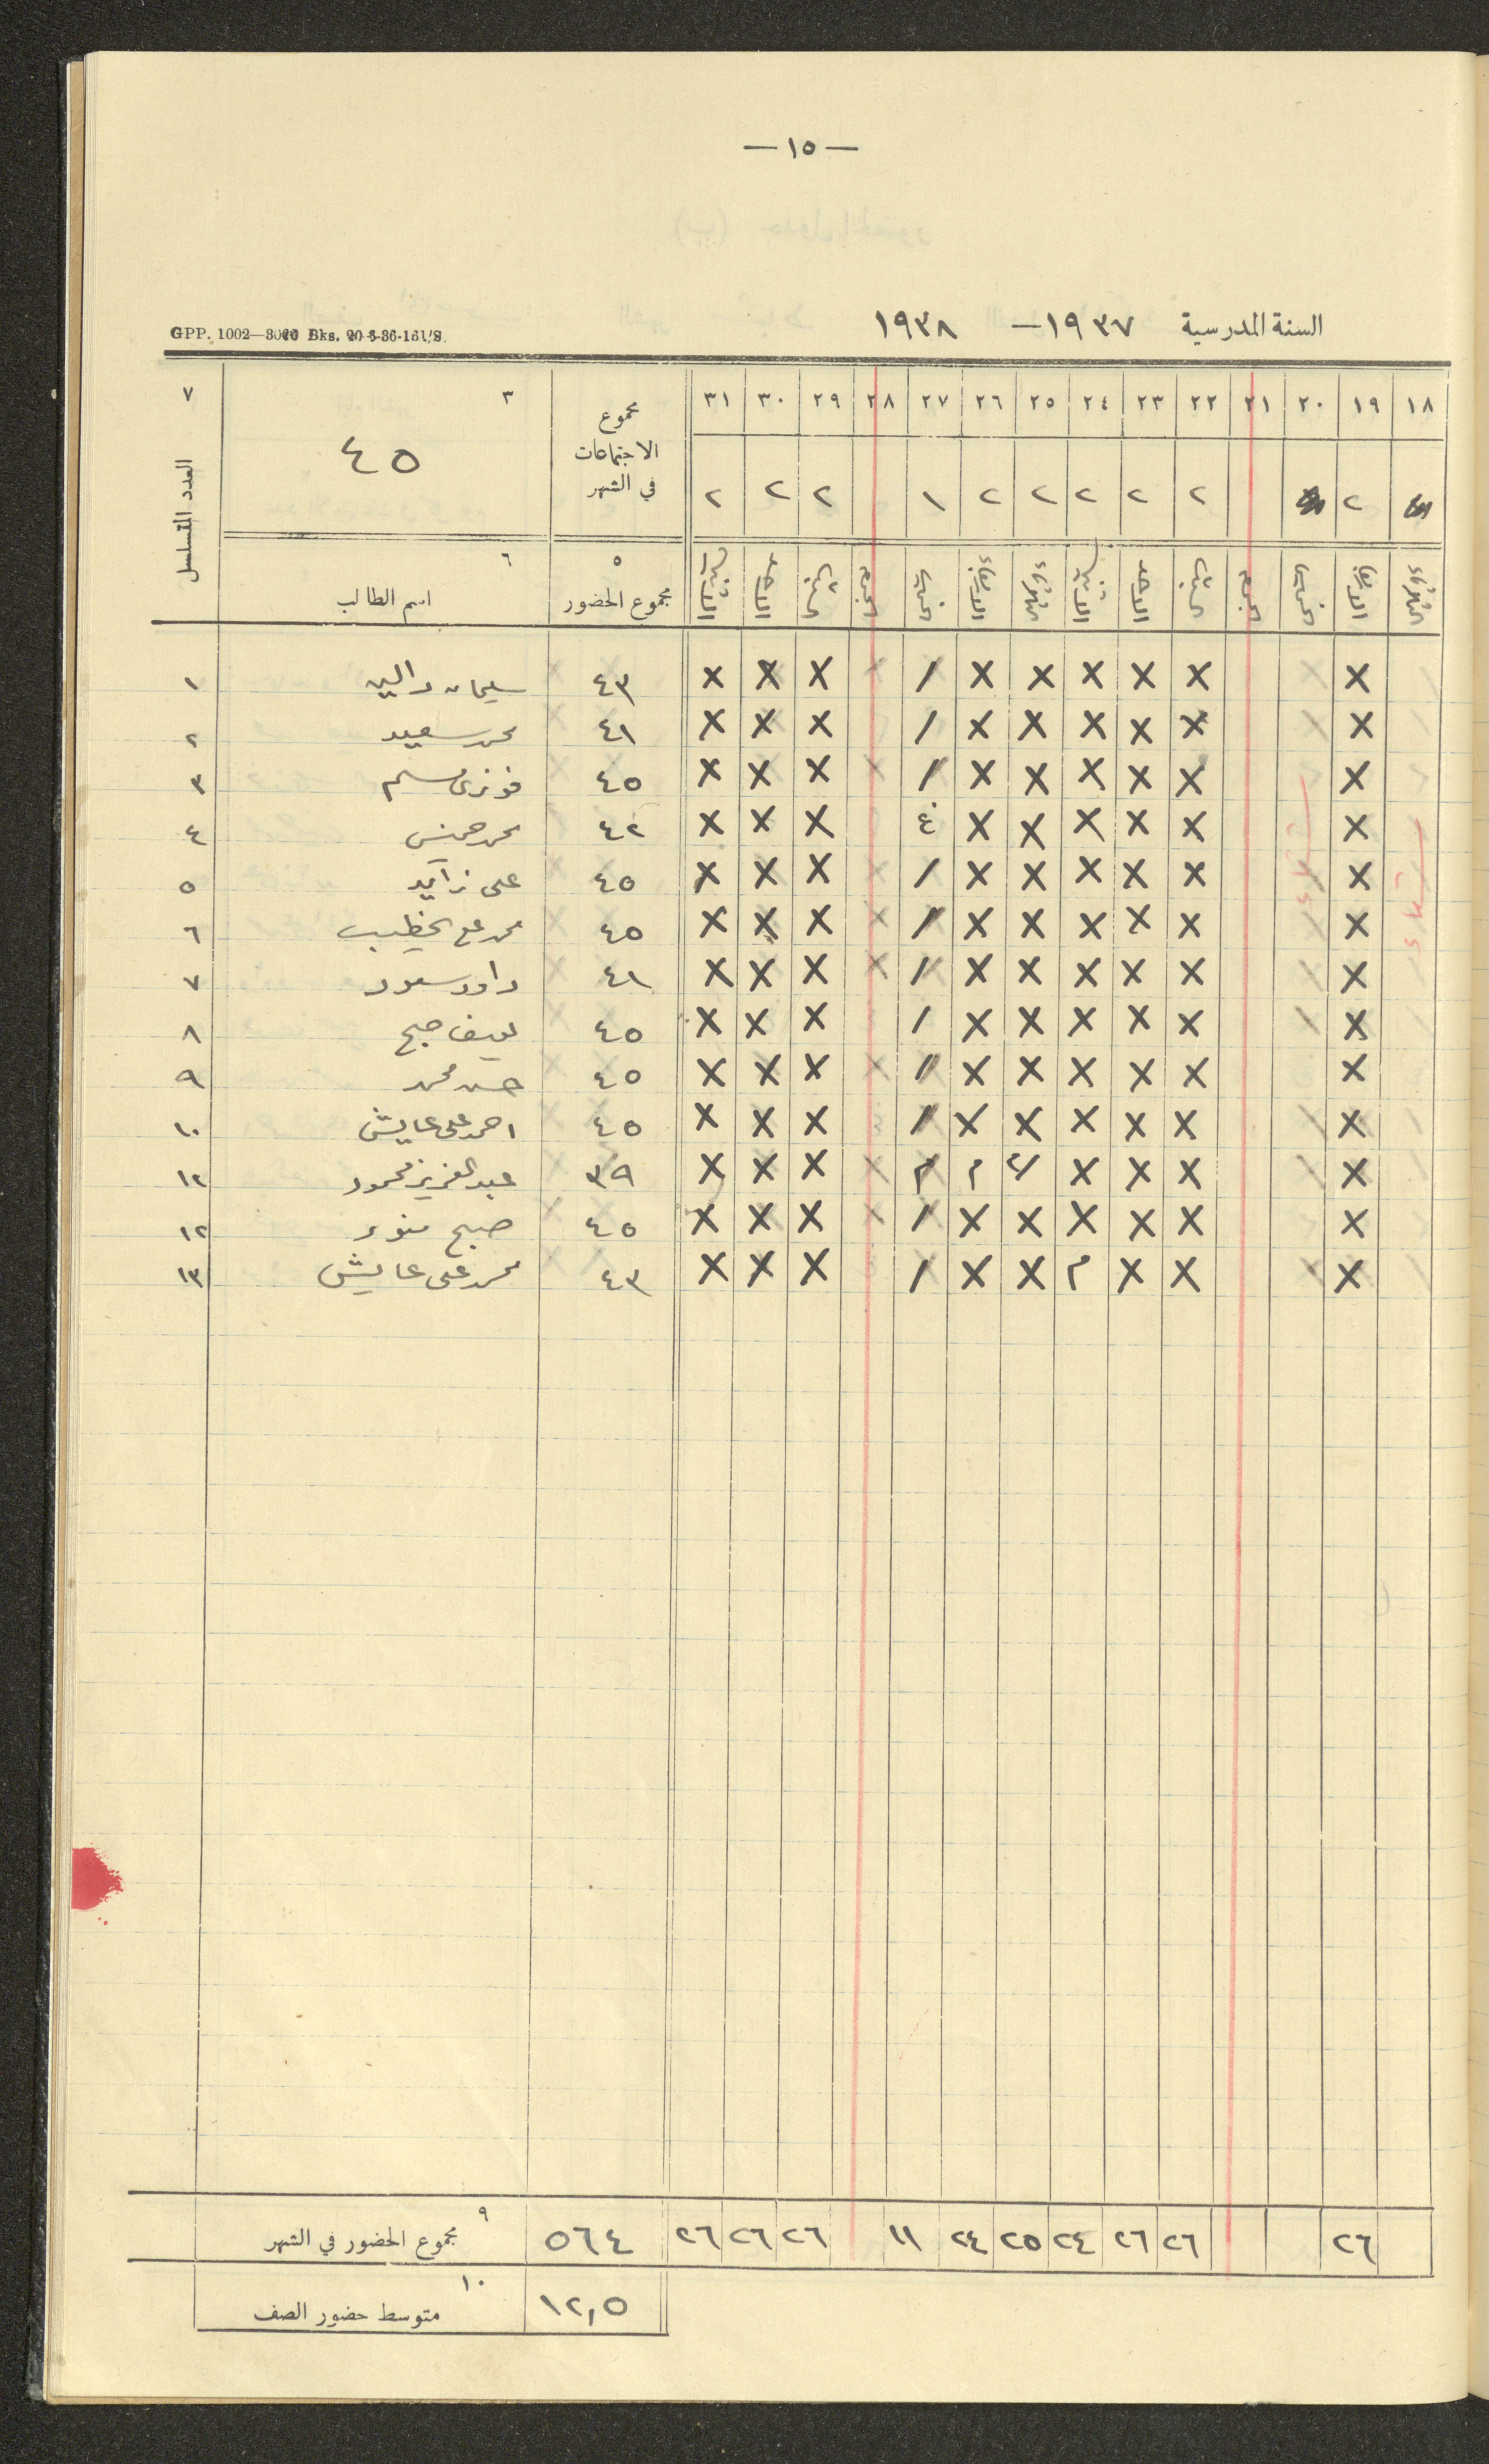 — ١٥ —
السنة المدرسية ١٩٣٧ — ١٩٣٨
GPP. 1002—3000 Bks. 20-5-36-161/S.
١٨ ١٩ ٢٠ ٢١ ٢٢ ٢٣ ٢٤ ٢٥ ٢٦ ٢٧ ٢٨ ٢٩ ٣٠ ٣١ مجموع الاجتماعات في الشهر ٣ ٤٥ ٧ العدد المتسلسل
٢ ٢ ٢ ٢ ٢ ٢ ١ ٢ ٢ ٢
الثلاثاء الاربعاء الخميس الجمعة السبت الاحد الاثنين الثلاثاء الاربعاء الخميس الجمعة السبت الاحد الاثنين ٥ مجموع الحضور ٦ اسم الطالب
X X X X X X / X X X ٤٣ سليمان ١
X X X X X X / X X X ٤١ محمد سعيد ٢
X X X X X X / X X X ٤٥ فوزي مسلم ٣
X X X X X X غ X X X ٤٢ محمد ٤
X X X X X X / X X X ٤٥ علي زايد ٥
X X X X X X / X X X ٤٥ محمد علي الخطيب ٦
X X X X X X / X X X ٤١ داود سعود ٧
X X X X X X / X X X ٤٥ صبح ٨
X X X X X X / X X X ٤٥ حسن محمد ٩
X X X X X X / X X X ٤٥ احمد علي عايش ١٠
X X X X م م X X X ٣٩ عبد العزيز محمود ١٢
X X X X X X / X X X ٤٥ صبح ١٢
X X X م X X / X X X ٤٣ محمد علي عايش ١٣
٢٦ ٢٦ ٢٦ ٢٤ ٢٥ ٢٤ ١١ ٢٦ ٢٦ ٢٦ ٥٦٤ ٩ مجموع الحضور في الشهر
١٢,٥ ١٠ متوسط حضور الصف